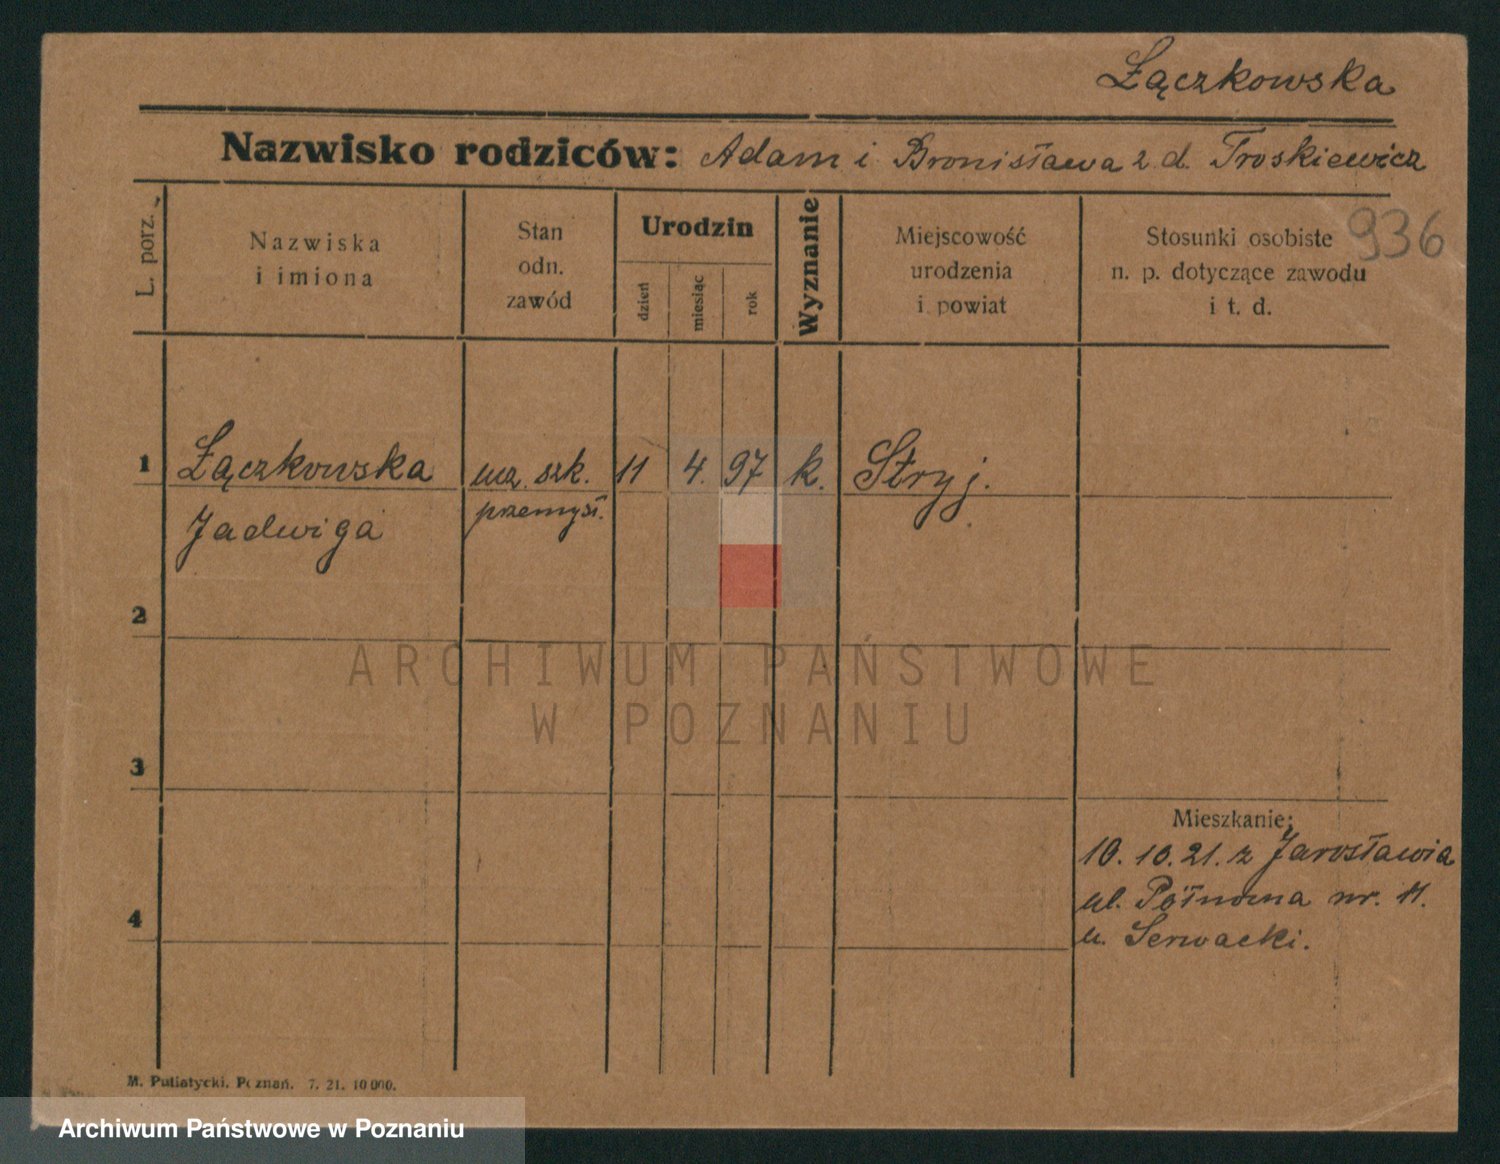 Łączkowska
Nazwisko rodziców: Adam i Bronisława z d. Troskiewicz
936
L. porz.
Nazwiska
i imiona
Stan
odn.
zawód
Urodzin
dzień
miesiąc
rok
Wyznanie
Miejscowość
urodzenia
i powiat
Stosunki osobiste
n. p. dotyczące zawodu
i t. d.
1 Łączkowska ucz. szk. 11 4. 97 k. Stryj.
Jadwiga przemysł.
2
ARCHIWUM PAŃSTWOWE
W POZNANIU
3
Mieszkanie:
10. 10. 21. z Jarosławia
ul. Północna nr. 11.
4
u. Serwacki.
M. Putiatycki, Poznań. 7. 21. 10000.
Archiwum Państwowe w Poznaniu